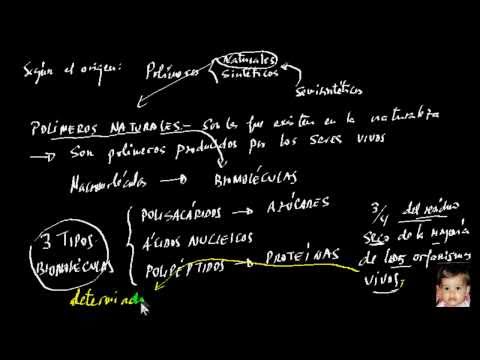 Según el origen: Polímeros Naturales
Sintéticos
Semisintéticos
POLÍMEROS NATURALES.- Son los que existen en la naturaleza
Son polímeros producidos por los seres vivos
Macromoléculas BIOMOLÉCULAS
3 TIPOS
BIOMOLÉCULAS
POLISACÁRIDOS AZÚCARES
ÁCIDOS NUCLEICOS
POLIPÉPTIDOS PROTEÍNAS
3/4 del residuo
seco de la mayoría
de los organismos
vivos
determinada